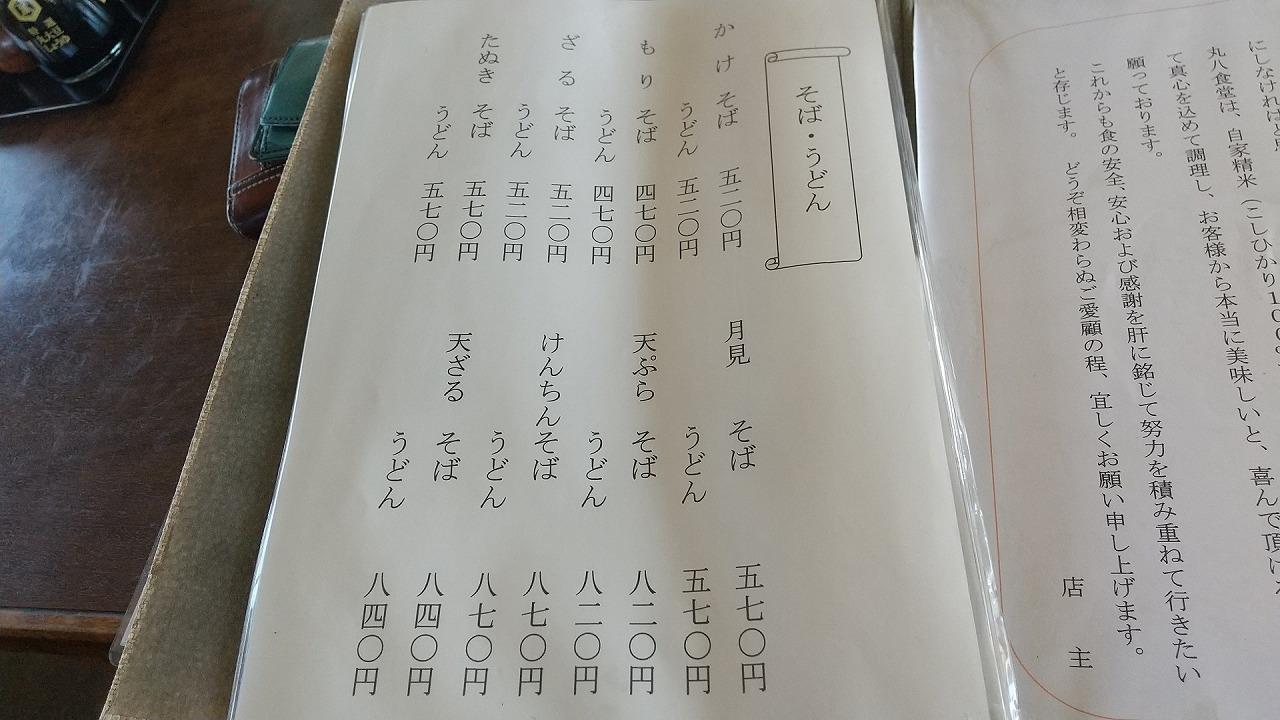 にしなければと
丸八食堂は、自家精米（こしひかり１００％
て真心を込めて調理し、お客様から本当に美味しいと、喜んで頂け
願っております。
これからも食の安全、安心および感謝を肝に銘じて努力を積み重ねて行きたい
と存じます。　どうぞ相変わらぬご愛顧の程、宜しくお願い申し上げます。
店　主
そば・うどん
かけ そば 五二〇円
うどん 五二〇円
もり そば 四七〇円
うどん 四七〇円
ざる そば 五二〇円
うどん 五二〇円
たぬき そば 五七〇円
うどん 五七〇円
月見 そば 五七〇円
うどん 五七〇円
天ぷら そば 八二〇円
うどん 八二〇円
けんちん そば 八七〇円
うどん 八七〇円
天ざる そば 八四〇円
うどん 八四〇円